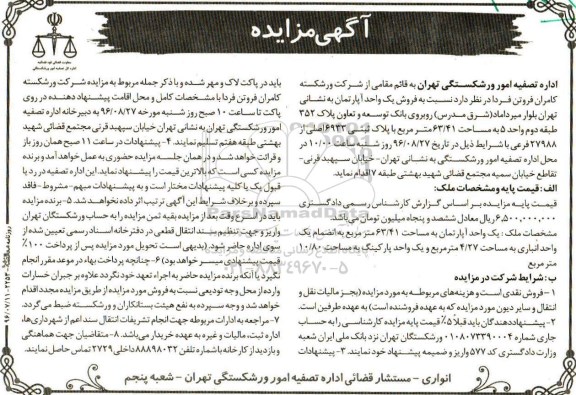 آگهی مزایده
اداره تصفیه امور ورشکستگی تهران به قائم مقامی از شرکت ورشکسته
کامران فروتن فردا در نظر دارد نسبت به فروش یک واحد آپارتمان به نشانی
تهران بلوار میرداماد(شرق مدرس) روبروی بانک توسعه و تعاون پلاک ۳۵۲
طبقه دوم واحد ۵ به مساحت ۶۳/۴۱ متر مربع با پلاک ثبتی ۶۹۳۳ اصلی از
۲۷۹۸۸ فرعی با شرایط ذیل در تاریخ ۹۶/۰۸/۲۷ روز شنبه ۱۰/۰۰ در
محل اداره تصفیه امور ورشکستگی به نشانی تهران- خیابان سپهبد قرنی-
تقاطع خیابان سمیه مجتمع قضائی شهید بهشتی طبقه ۷ اقدام نماید.
الف: قیمت پایه و مشخصات ملک:
قیمت پایه مزایده بر اساس گزارش کارشناس رسمی دادگستری
۶.۵۰۰.۰۰۰.۰۰۰ ریال معادل ششصد و پنجاه میلیون تومان می‌باشد.
مشخصات ملک: یک واحد آپارتمان به مساحت ۶۳/۴۱ متر مربع به انضمام یک
واحد انباری به مساحت ۴/۲۷ متر مربع و یک واحد پارکینگ به مساحت ۱۰/۸۰
متر مربع
ب: شرایط شرکت در مزایده
۱- فروش نقدی است و هزینه‌های مربوطه به مورد مزایده (بجز مالیات نقل و
انتقال و سایر دیون مورد مزایده که به عهده فروشنده است) به عهده طرفین است.
۲- پیشنهاددهندگان باید قبلاً ۵٪ قیمت پایه مزایده کارشناسی را به حساب
جاری شماره ۰۱۰۸۰۷۳۳۹۰۰۰۴ ورشکستگان تهران نزد بانک ملی ایران شعبه
وزارت دادگستری کد ۵۷۷ واریز و ضمیمه پیشنهاد خود نمایند. ۳- پیشنهادات
باید در پاکت لاک و مهر شده و با ذکر جمله مربوط به مزایده شرکت ورشکسته
کامران فروتن فردا با مشخصات کامل و محل اقامت پیشنهاد دهنده در روی
پاکت تا ساعت ۱۰ صبح روز شنبه مورخه ۹۶/۰۸/۲۷ به دبیرخانه اداره تصفیه
امور ورشکستگی تهران به نشانی تهران خیابان سپهبد قرنی مجتمع قضائی شهید
بهشتی طبقه هفتم تسلیم نمایند. ۴- پیشنهادات در ساعت ۱۱ صبح همان روز باز
و قرائت خواهد شد و در همان جلسه مزایده حضوری به عمل خواهد آمد و برنده
مزایده کسی است که بالاترین قیمت را پیشنهاد نماید. این اداره تصفیه در رد یا
قبول یک یا کلیه پیشنهادات مختار است و به پیشنهادات مبهم- مشروط- فاقد
سپرده و برخلاف شرایط این آگهی ترتیب اثر داده نخواهد شد. ۵- برنده مزایده
باید در اسرع وقت بعد از مزایده بقیه ثمن مزایده را به حساب ورشکستگان تهران
واریز و جهت تنظیم سند انتقال قطعی در دفترخانه اسناد رسمی تعیین شده از
سوی اداره حاضر شود. (بدیهی است تحویل مورد مزایده پس از پرداخت ۱۰۰٪
قیمت پیشنهادی میسر خواهد بود) ۶- چنانچه پرداخت بهاء در موعد مقرر انجام
نگیرد یا آنکه برنده مزایده حاضر به اجراء تعهد خود نگردد علاوه بر جبران خسارات
وارده از محل وجه تودیعی نسبت به فروش مورد مزایده از طریق مزایده مجدد اقدام
خواهد شد و وجه سپرده به نفع هیئت بستانکاران و ورشکسته ضبط می گردد.
۷- مراجعه به ادارات مربوطه جهت انجام تشریفات انتقال سند اعم از شهرداری‌ها،
اداره ثبت، مالیات و غیره به عهده خریدار می‌باشد. ۸- متقاضیان جهت هماهنگی
و بازدید از کار خانه با شماره تلفن ۸۸۸۹۸۰۳۲ داخلی ۲۷۲۹ تماس حاصل نمایند.
انواری - مستشار قضائی اداره تصفیه امور ورشکستگی تهران - شعبه پنجم